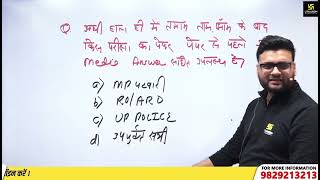 Q अभी हाल ही में तमाम ताम झाम के बाद
किस परीक्षा का पेपर पेपर से पहले
Media Answer सहित उपलब्ध है?
a) MP पटवारी
b) RO/ARO
c) UP POLICE
d) उपर्युक्त सभी
FOR MORE INFORMATION
9829213213